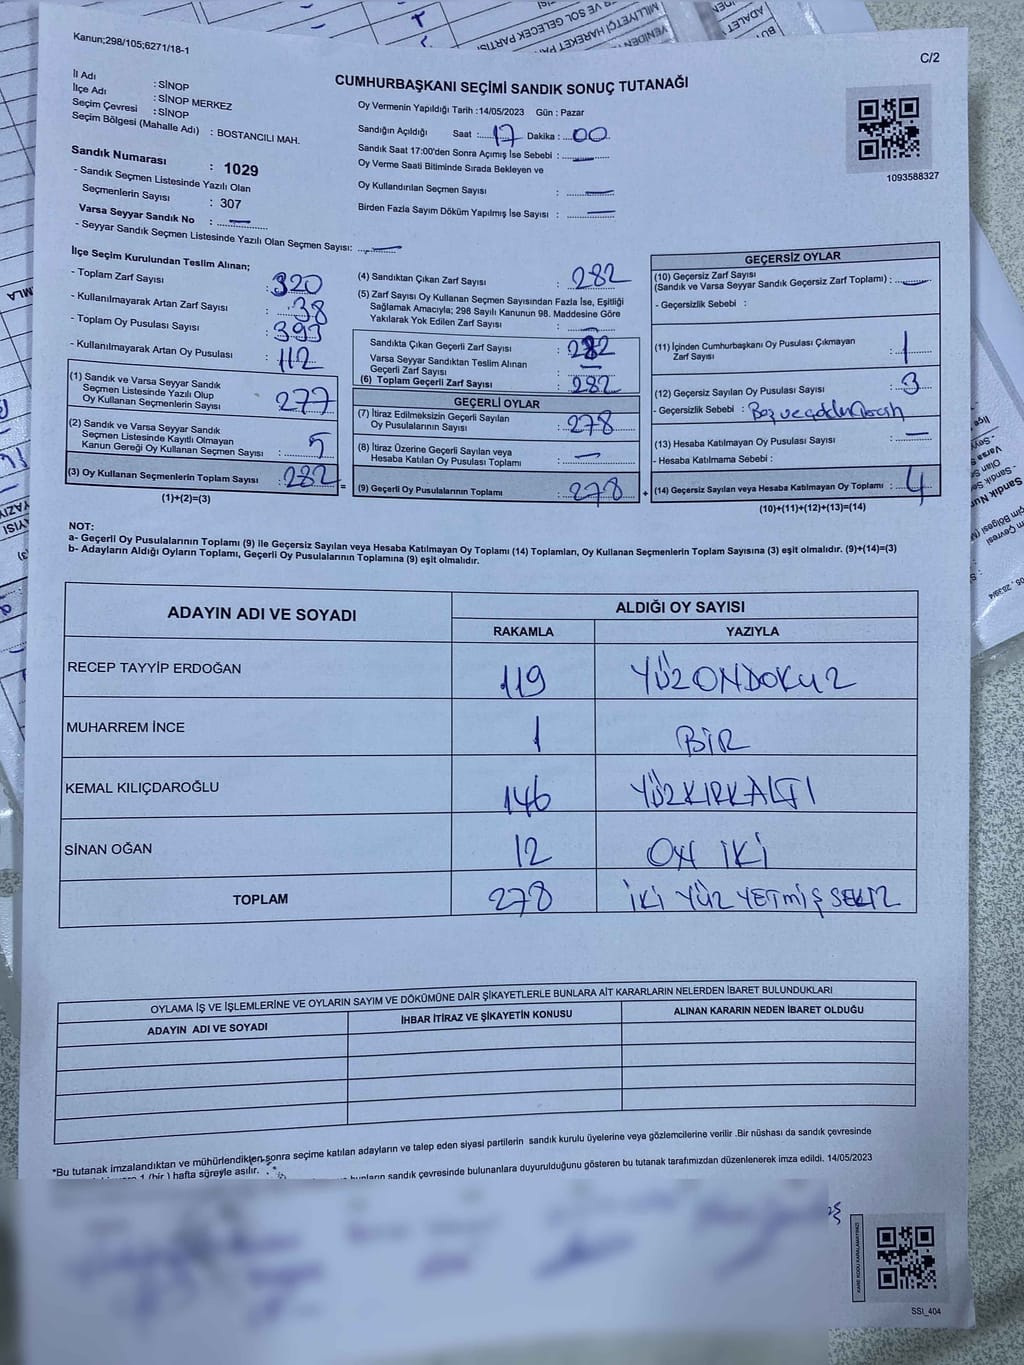 Kanun;298/105;6271/18-1
C/2
CUMHURBAŞKANI SEÇİMİ SANDIK SONUÇ TUTANAĞI
İl Adı : SİNOP
İlçe Adı : SİNOP MERKEZ
Seçim Çevresi : SİNOP
Seçim Bölgesi (Mahalle Adı) : BOSTANCILI MAH.
Sandık Numarası : 1029
- Sandık Seçmen Listesinde Yazılı Olan
Seçmenlerin Sayısı : 307
Varsa Seyyar Sandık No : —
- Seyyar Sandık Seçmen Listesinde Yazılı Olan Seçmen Sayısı: —
Oy Vermenin Yapıldığı Tarih :14/05/2023 Gün : Pazar
Sandığın Açıldığı Saat : 17 Dakika : 00
Sandık Saat 17:00'den Sonra Açımış İse Sebebi : —
Oy Verme Saati Bitiminde Sırada Bekleyen ve
Oy Kullandırılan Seçmen Sayısı : —
Birden Fazla Sayım Döküm Yapılmış İse Sayısı : —
1093588327
İlçe Seçim Kurulundan Teslim Alınan;
- Toplam Zarf Sayısı : 320
- Kullanılmayarak Artan Zarf Sayısı : 38
- Toplam Oy Pusulası Sayısı : 393
- Kullanılmayarak Artan Oy Pusulası : 112
(1) Sandık ve Varsa Seyyar Sandık
Seçmen Listesinde Yazılı Olup
Oy Kullanan Seçmenlerin Sayısı : 277
(2) Sandık ve Varsa Seyyar Sandık
Seçmen Listesinde Kayıtlı Olmayan
Kanun Gereği Oy Kullanan Seçmen Sayısı : 5
(3) Oy Kullanan Seçmenlerin Toplam Sayısı : 282
(1)+(2)=(3)
(4) Sandıktan Çıkan Zarf Sayısı : 282
(5) Zarf Sayısı Oy Kullanan Seçmen Sayısından Fazla İse, Eşitliği
Sağlamak Amacıyla; 298 Sayılı Kanunun 98. Maddesine Göre
Yakılarak Yok Edilen Zarf Sayısı : —
Sandıkta Çıkan Geçerli Zarf Sayısı : 282
Varsa Seyyar Sandıktan Teslim Alınan
Geçerli Zarf Sayısı : —
(6) Toplam Geçerli Zarf Sayısı : 282
GEÇERLİ OYLAR
(7) İtiraz Edilmeksizin Geçerli Sayılan
Oy Pusulalarının Sayısı : 278
(8) İtiraz Üzerine Geçerli Sayılan veya
Hesaba Katılan Oy Pusulası Toplamı : —
(9) Geçerli Oy Pusulalarının Toplamı : 278
GEÇERSİZ OYLAR
(10) Geçersiz Zarf Sayısı
(Sandık ve Varsa Seyyar Sandık Geçersiz Zarf Toplamı) : —
- Geçersizlik Sebebi :
(11) İçinden Cumhurbaşkanı Oy Pusulası Çıkmayan
Zarf Sayısı : 1
(12) Geçersiz Sayılan Oy Pusulası Sayısı : 3
- Geçersizlik Sebebi :
(13) Hesaba Katılmayan Oy Pusulası Sayısı : —
- Hesaba Katılmama Sebebi :
(14) Geçersiz Sayılan veya Hesaba Katılmayan Oy Toplamı : 4
(10)+(11)+(12)+(13)=(14)
NOT:
a- Geçerli Oy Pusulalarının Toplamı (9) ile Geçersiz Sayılan veya Hesaba Katılmayan Oy Toplamı (14) Toplamları, Oy Kullanan Seçmenlerin Toplam Sayısına (3) eşit olmalıdır. (9)+(14)=(3)
b- Adayların Aldığı Oyların Toplamı, Geçerli Oy Pusulalarının Toplamına (9) eşit olmalıdır.
ADAYIN ADI VE SOYADI
ALDIĞI OY SAYISI
RAKAMLA YAZIYLA
RECEP TAYYİP ERDOĞAN 119 YÜZONDOKUZ
MUHARREM İNCE 1 BİR
KEMAL KILIÇDAROĞLU 146 YÜZKIRKALTI
SİNAN OĞAN 12 ON İKİ
TOPLAM 278 İKİ YÜZ YETMİŞ SEKİZ
OYLAMA İŞ VE İŞLEMLERİNE VE OYLARIN SAYIM VE DÖKÜMÜNE DAİR ŞİKAYETLERLE BUNLARA AİT KARARLARIN NELERDEN İBARET BULUNDUKLARI
ADAYIN ADI VE SOYADI İHBAR İTİRAZ VE ŞİKAYETİN KONUSU ALINAN KARARIN NEDEN İBARET OLDUĞU
*Bu tutanak imzalandıktan ve mühürlendikten sonra seçime katılan adayların ve talep eden siyasi partilerin sandık kurulu üyelerine veya gözlemcilerine verilir .Bir nüshası da sandık çevresinde
1 (bir ) hafta süreyle asılır.
sandık çevresinde bulunanlara duyurulduğunu gösteren bu tutanak tarafımızdan düzenlenerek imza edildi. 14/05/2023
SSI_404